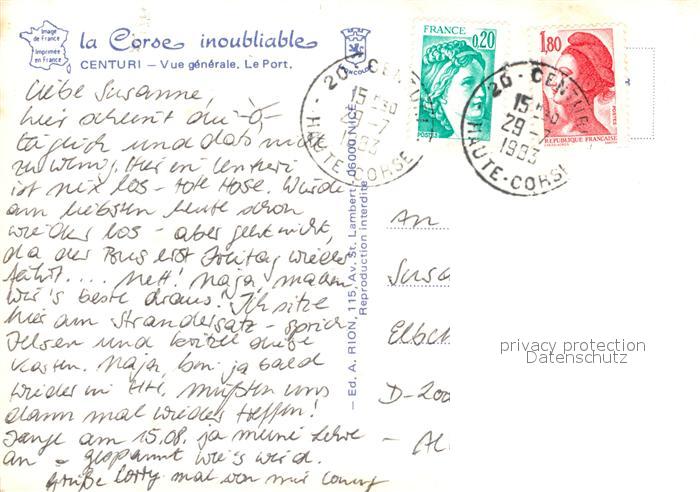 Image de France
Imprimée en France
la Corse inoubliable
CENTURI — Vue générale. Le Port.
Liebe Susanne,
hier scheint die
täglich und das nicht
zu wenig. Hier in Centuri
ist nix los - tote Hose. Würde
am liebsten heute schon
wieder los - aber geht nicht,
da der Bus erst Freitag wieder
fährt.... Nett! Naja, machen
wir's beste draus! Ich sitze
hier am Strandersatz - sprich
Felsen und kritzle diese
Karten. Naja, bin ja bald
wieder in HH. Müßten uns
dann mal wieder treffen!
Fange am 15.08. ja meine Lehre
an - gespannt wie's wird.
Grüße mal von mir
— Ed. A. RION, 115, Av. St. Lambert, 06000 NICE
Reproduction interdite
FRANCE
0,20
POSTES
20 - CENTURI
15 H30
29-7
1983
HAUTE-CORSE
1,80
POSTES
REPUBLIQUE FRANÇAISE
20 - CENTURI
15 H30
29-7
1983
HAUTE-CORSE
An
Susa
Elbch
D-200
privacy protection
Datenschutz